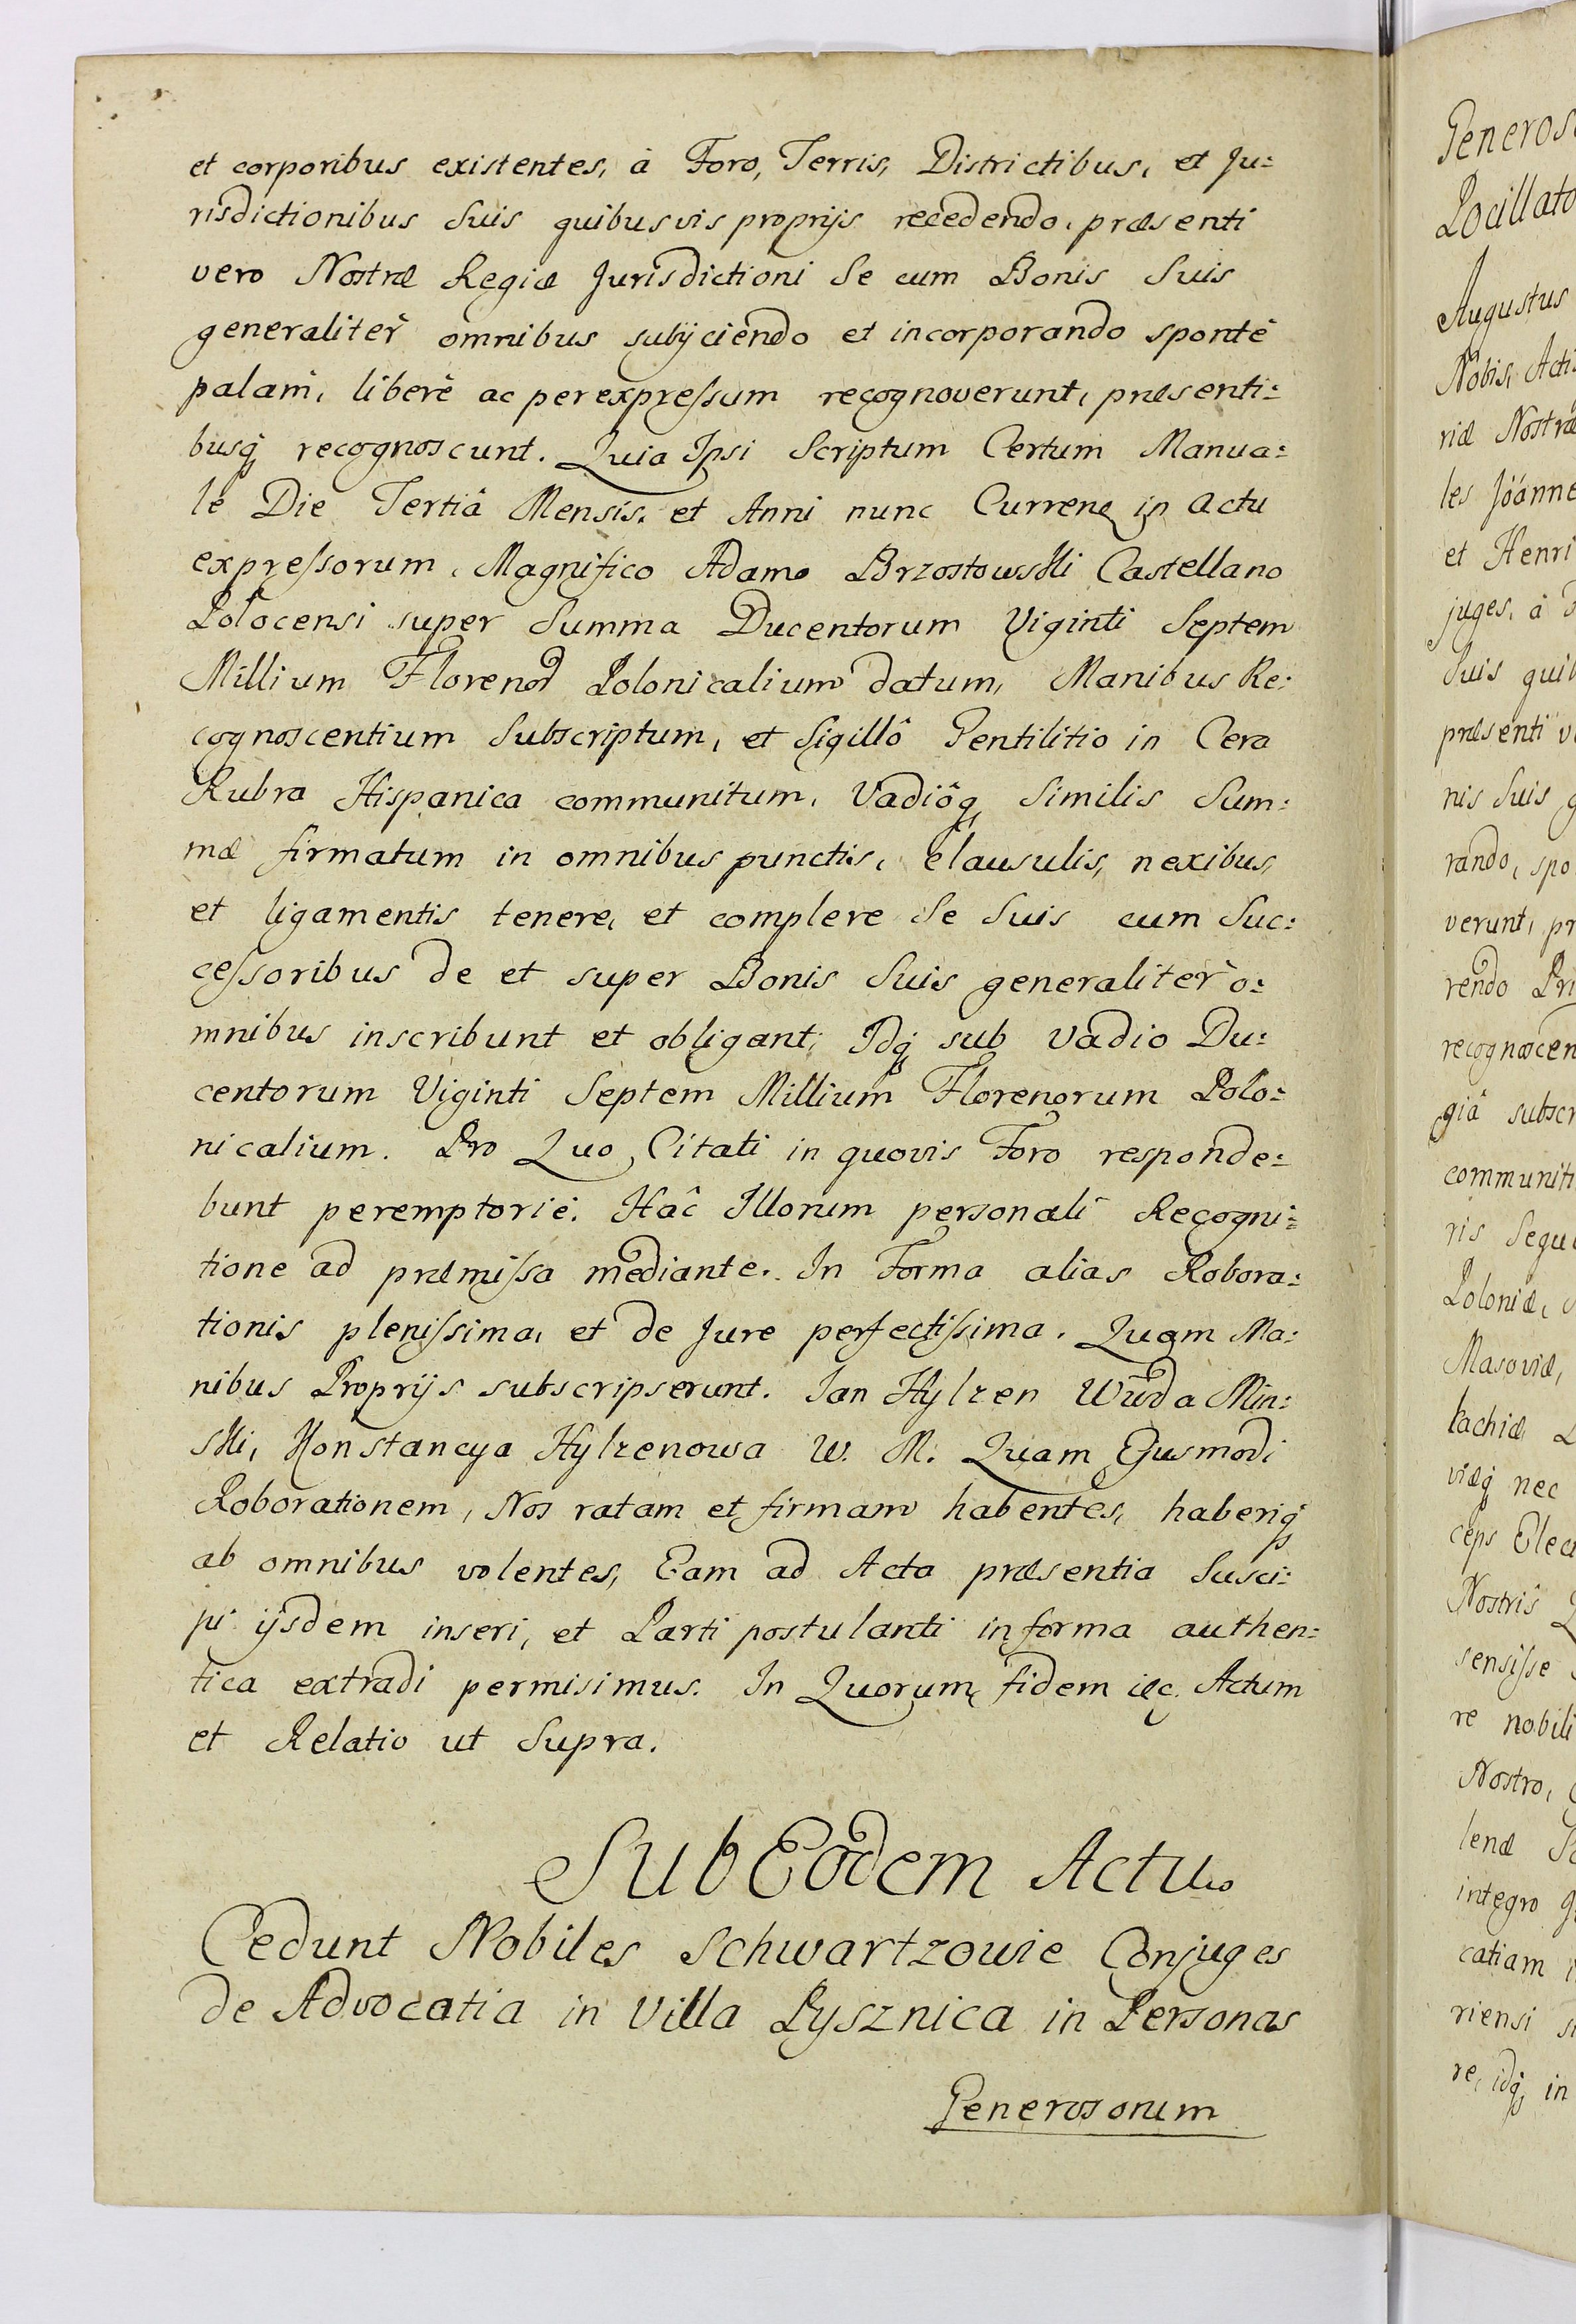 et corporibus existentes, à Foro, Terris, Districtibus, et Ju=
risdictionibus Suis quibusvis proprijs recedendo, præsenti
vero Nostræ Regiæ Jurisdictioni Se cum Bonis Suis
generalitèr omnibus subijciendo et incorporando spontè
palam, liberè ac per expreſsum recognoverunt, præsenti=
busq recognoscunt. Quia Ipsi Scriptum Certum Manua=
le Die Tertiâ Mensis, et Anni nunc Curren in actu
expreſsorum, Magnifico Adamo Brzostowski Castellano
Polocensi super Summa Ducentorum Viginti Septem
Millium Florenor Polonicalium datum, Manibus Re=
cognoscentium Subscriptum, et Sigillô Gentilitio in Cera
Rubra Hispanica communitum, Vadiôq Similis Sum=
mæ firmatum in omnibus punctis, clausulis, nexibus,
et ligamentis tenere, et complere Se Suis cum Suc=
ceſsoribus de et super Bonis Suis generalitèr o=
mnibus inscribunt et obligant; Idq sub Vadio Du=
centorum Viginti Septem Millium Florenorum Polo=
nicalium. Pro Quo Citati in quovis Foro responde=
bunt peremptoriè. Hâc Illorum personali Recogni=
tione ad præmiſsa mediante. In Forma alias Robora=
tionis pleniſsima, et de Jure perfectiſsima. Quam Ma=
nibus Proprijs subscripserunt. Jan Hylzen Wwda Min=
ski, Konstancya Hylzenowa W. M. Quam Ejusmodi
Roborationem, Nos ratam et firmam habentes, haberiq
ab omnibus volentes, Eam ad Acta præsentia Susci=
pi ijsdem inseri, et Parti postulanti in forma authen=
tica extradi permisimus. In Quorum fidem Actum
et Relatio ut Supra.
Sub Eodem Actu
Cedunt Nobiles Schwartzowie Conjuges
de Advocatia in Villa Pysznica in Personas
Generosorum
Generos
Pocillato
Augustus
Nobis, Acti
riæ Nostræ
les Joánne
et Henri
juges, à
Suis quib
præsenti v
nis Suis g
rando, spo
verunt, pr
rendo Pri
recognoscen
giâ subscr
communit
ris Sequ
Poloniæ,
Masoviæ,
lachiæ,
viæq nec
ceps Elec
Nostris
sensiſse
re nobili
Nostro,
lenæ
integro
catiam
riensi
re, idq in